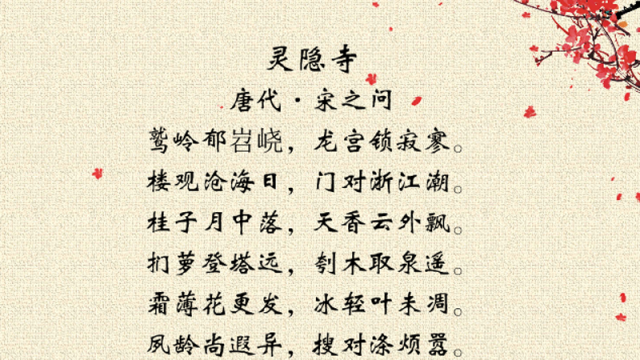 灵隐寺
唐代·宋之问
鹫岭郁岧峣，龙宫锁寂寥。
楼观沧海日，门对浙江潮。
桂子月中落，天香云外飘。
扪萝登塔远，刳木取泉遥。
霜薄花更发，冰轻叶未凋。
夙龄尚遐异，搜对涤烦嚣。